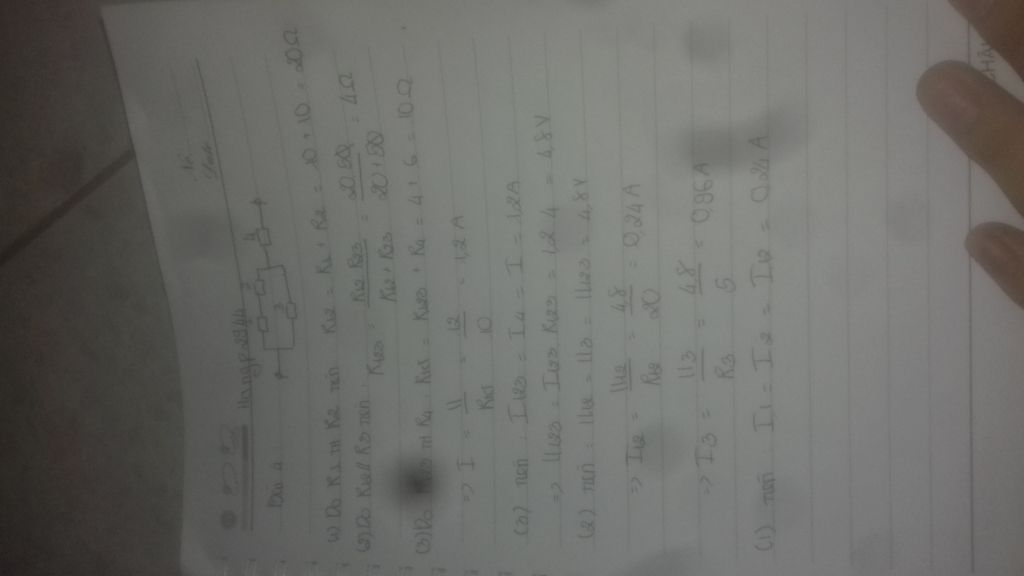 Bài 4
(1) Do R1 nt R2 nên R12 = R1 + R2 = 10 + 10 = 20Ω
(2) Do R12 // R3 nên R123 = R12 . R3 / R12 + R3 = = 4Ω
(3) Do R123 nt R4 . Rtđ = R123 + R4 = 4 + 6 = 10Ω
=> I = U / Rtđ = 12 / 10 = 1,2A
(3) nên I123 = I4 = I = 1,2A
=> U123 = I123 . R123 = 1,2 . 4 = 4,8V
(2) nên U12 = U3 = U123 = 4,8V
=> I12 = U12 / R12 = 4,8 / 20 = 0,24A
=> I3 = U3 / R3 = 4,8 / 5 = 0,96A
(1) nên I1 = I2 = I12 = 0,24A